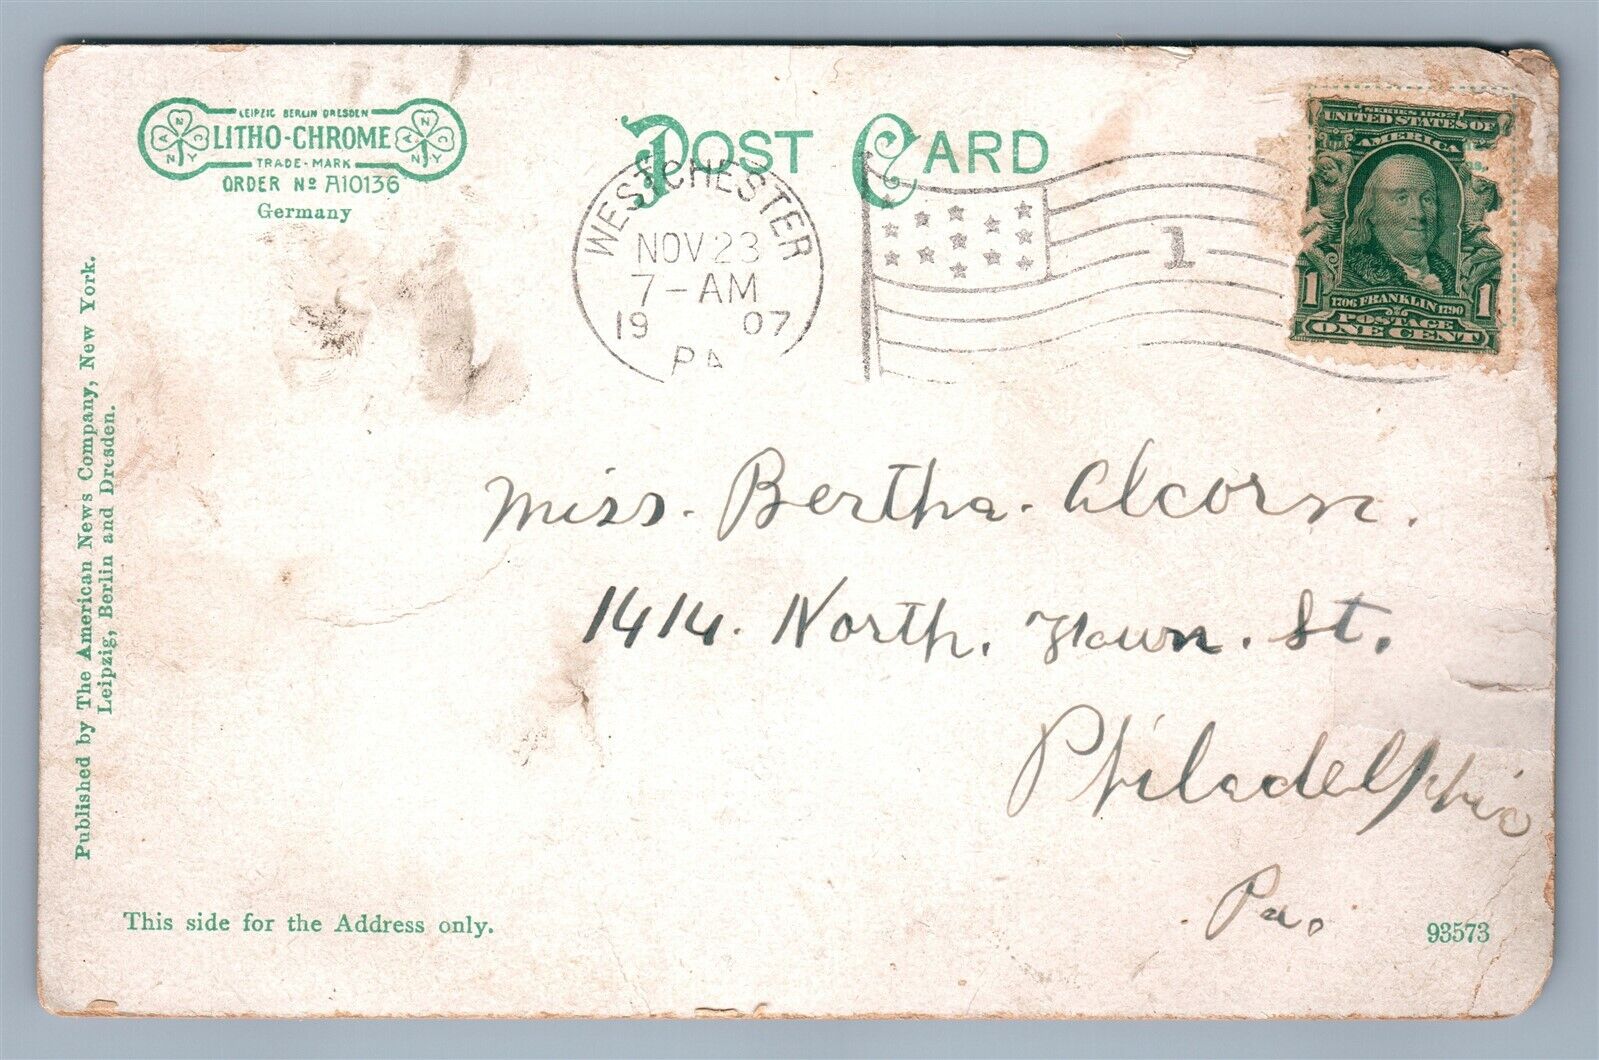 LEIPZIG BERLIN DRESDEN
LITHO-CHROME
TRADE-MARK
ORDER No A10136
Germany
POST CARD
WEST CHESTER
NOV 23
7-AM
1907
PA
1
SERIES 1902
UNITED STATES OF
AMERICA
1 1706 FRANKLIN 1790 1
POSTAGE
ONE CENT
Miss. Bertha. Alcorn.
1414. North. St.
Philadelphia
Pa.
Published by The American News Company, New York.
Leipzig, Berlin and Dresden.
This side for the Address only.
93573